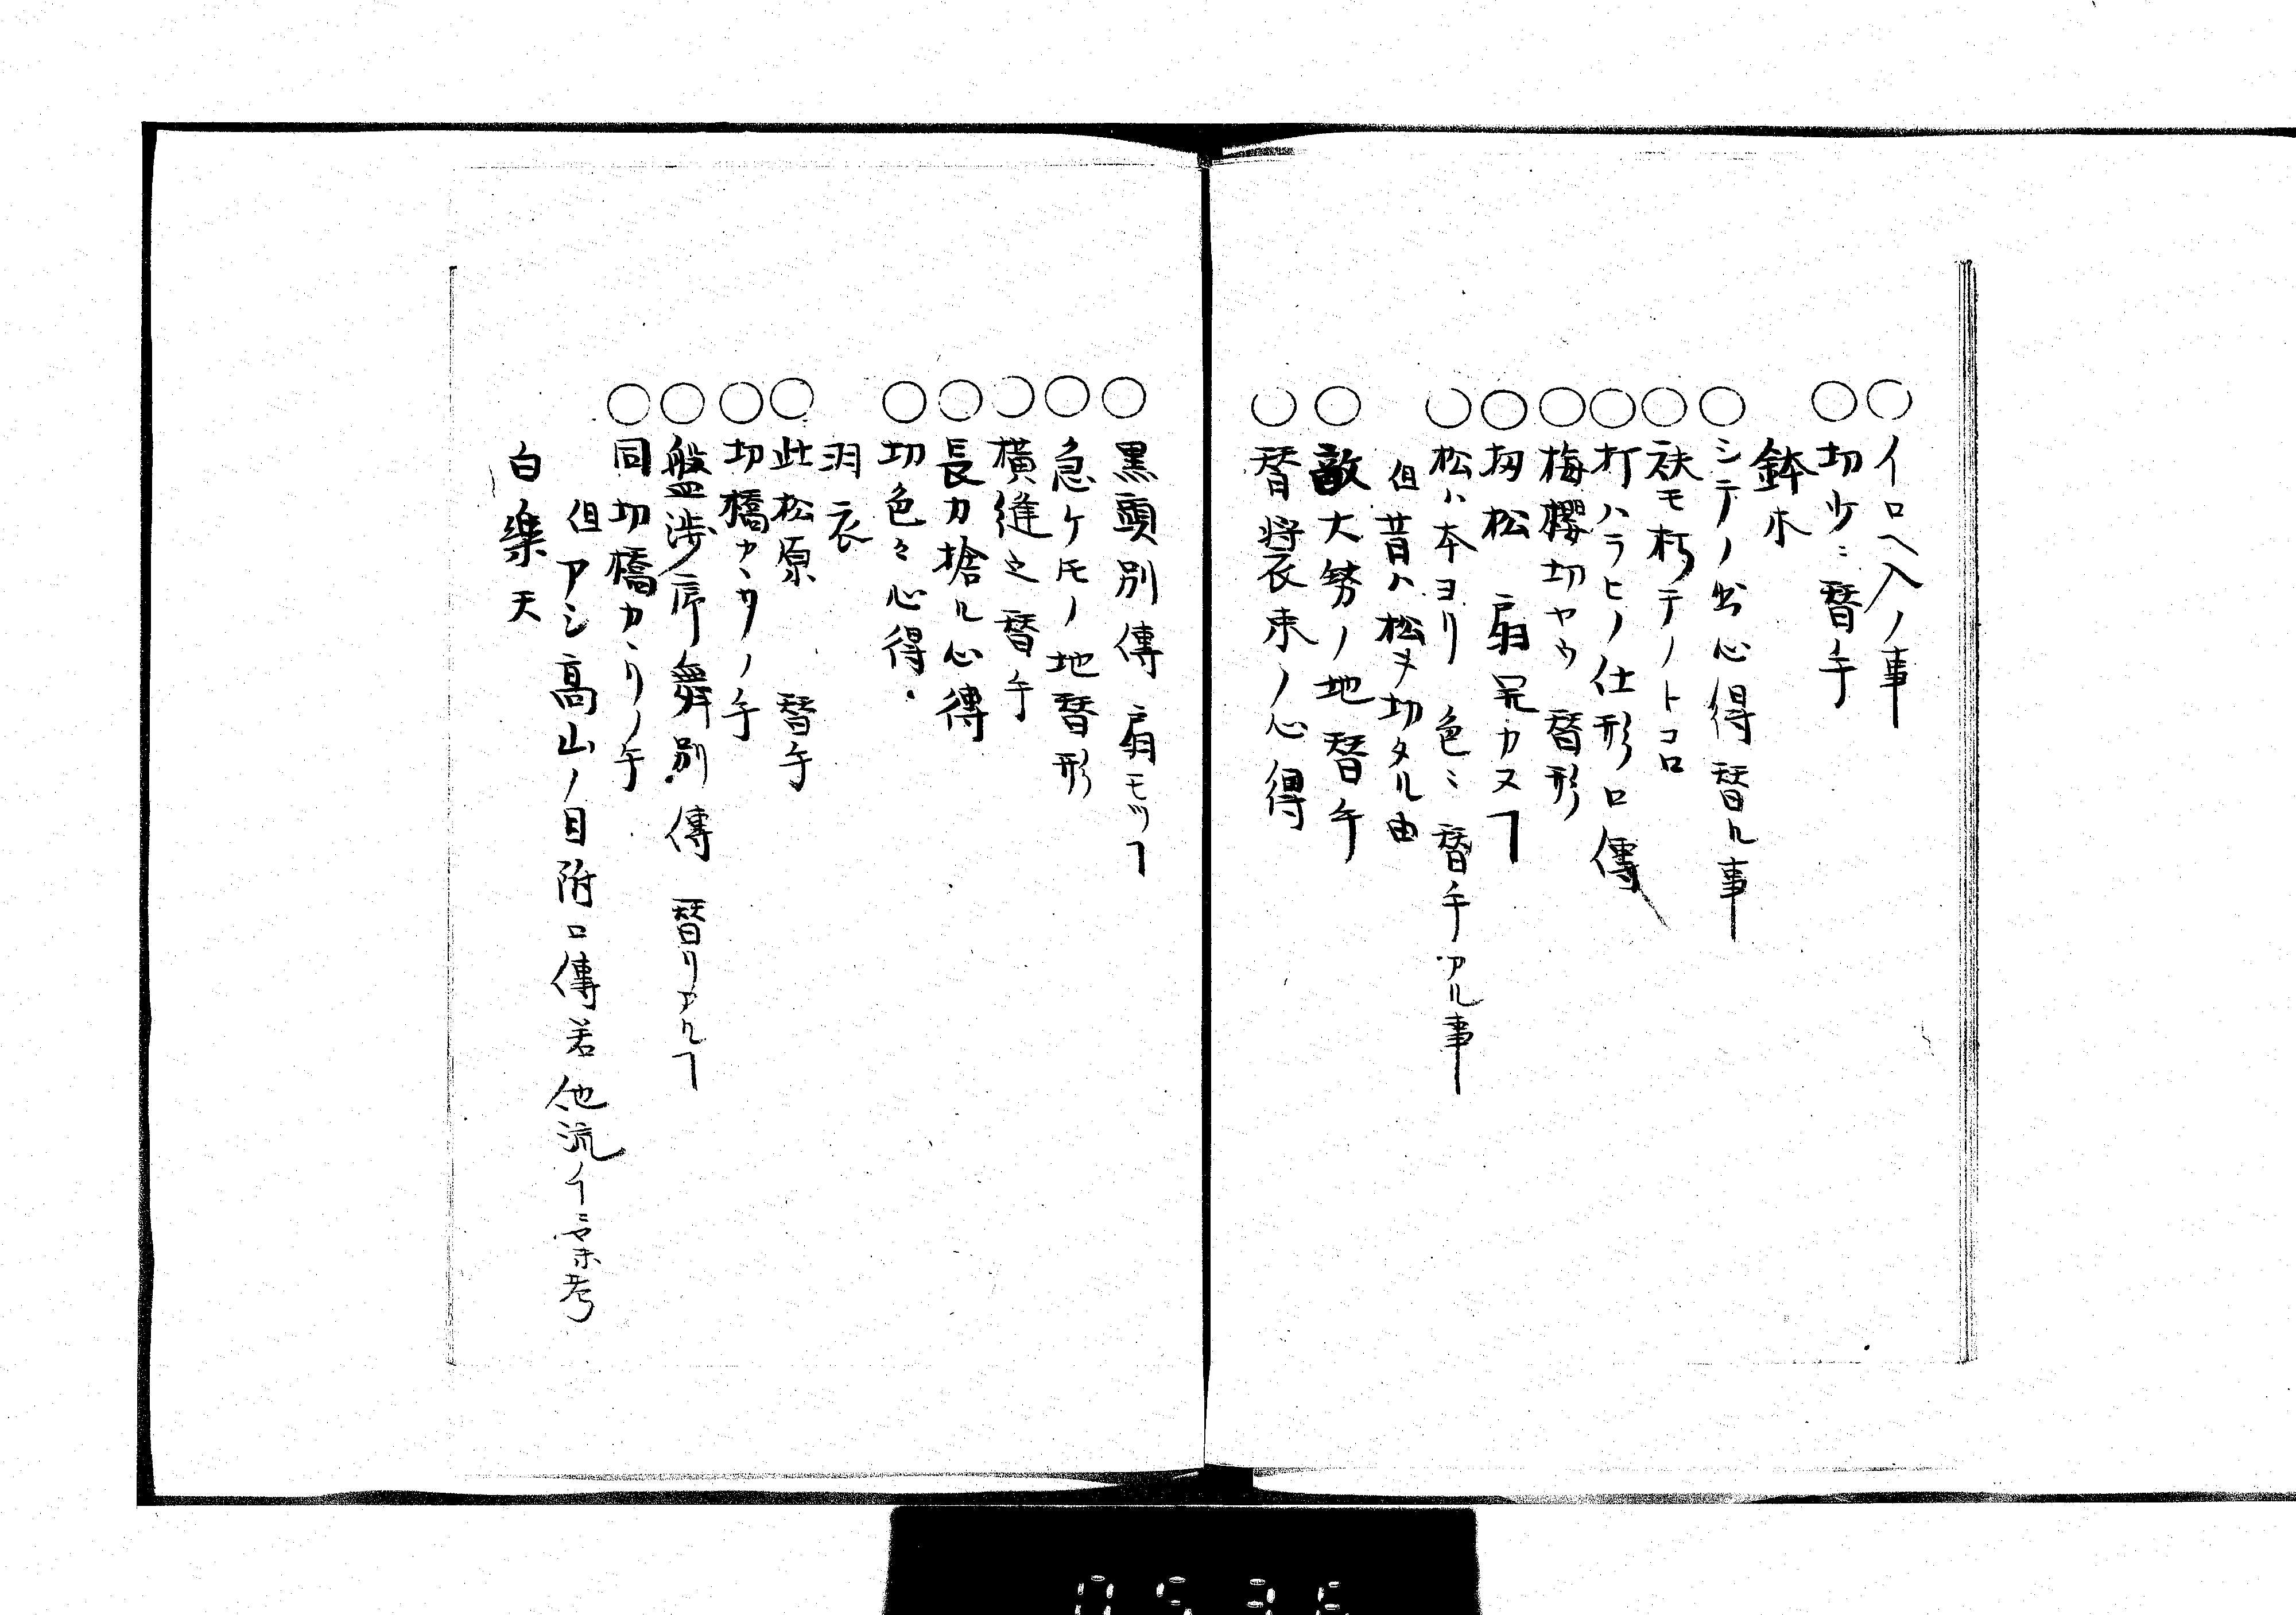 ○イロヘ入ノ事
○切少ミ替手
鉢木
○シテノ出心得替ル事
○袂モ朽テノトコロ
○打ハラヒノ仕形口傳
○梅櫻切ヤウ替形
○扨松 扇ニカヌヿ
○松ハ本ヨリ 色ミ替手アル事
但昔ハ松ヲ切タル由
○敵大勢ノ地替手
○替装束ノ心得
○黒頭別傳 扇モツヿ
○急ケモノ地替形
○横縫之替手
○長刀捨ル心得
○切色々心得
羽衣
○此松原 替手
○切橋カヽリノ手
○盤渉序舞別傳 替リアルヿ
○同切橋カヽリノ手
但アシ高山ノ目附口傳若他流
白樂天